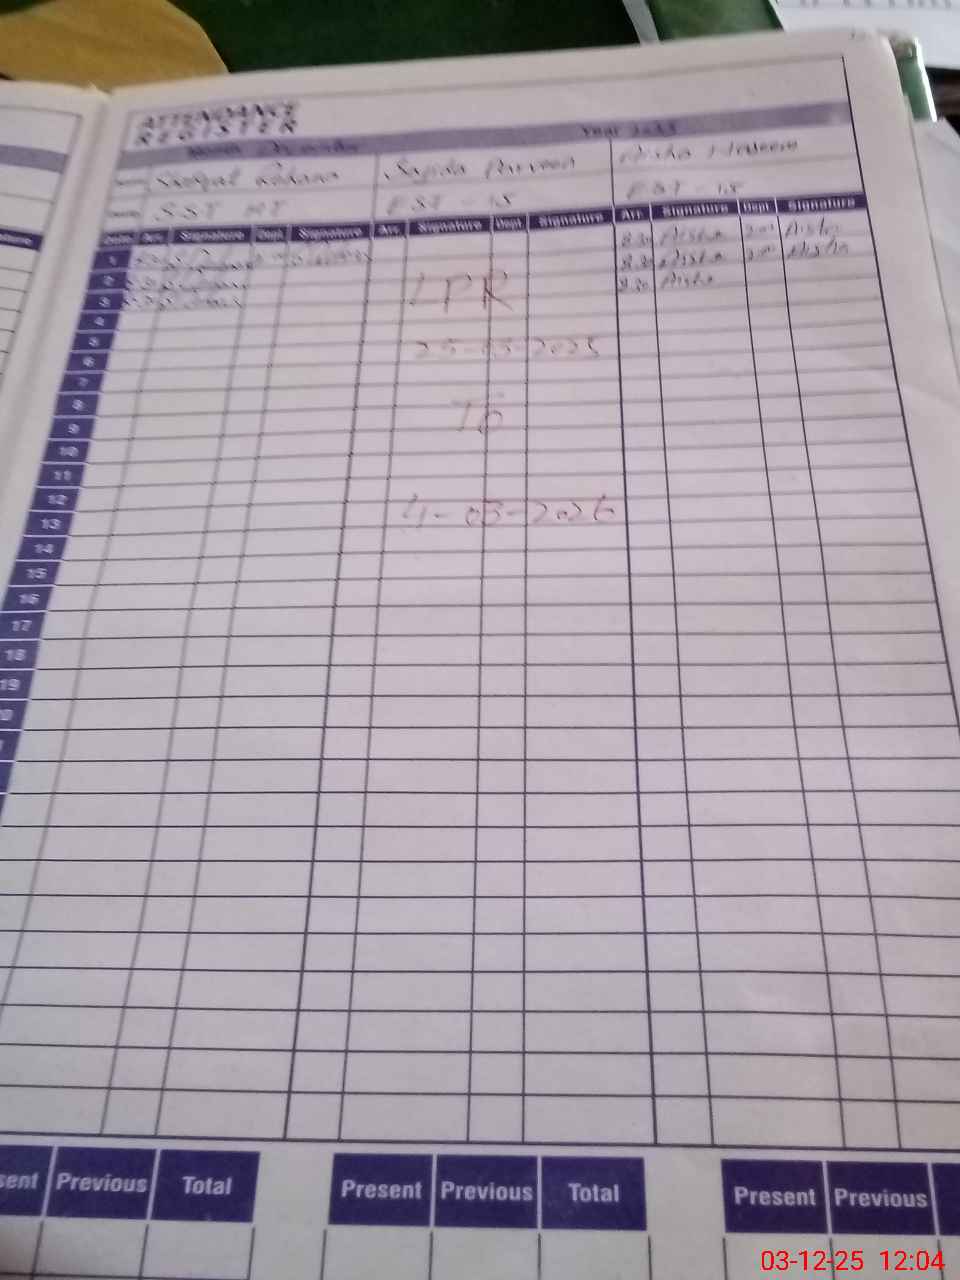 ATTENDANCE
REGISTER
Month December Year 2025
Rehana Sajida Parveen Aisha Naseem
SST EST - 15 EST - 15
Date Arr. Signature Dept. Signature Arr. Signature Dept. Signature Arr. Signature Dept. Signature
1 8.30 Aisha 2.00 Aisha
2 8.30 Aisha 2.00 Aisha
3 8.30 Aisha
LPR
4
5
25-03-2025
6
7
8
To
9
10
11
12
4-03-2026
13
14
15
16
17
18
19
Previous Total Present Previous Total Present Previous
03-12-25 12:04